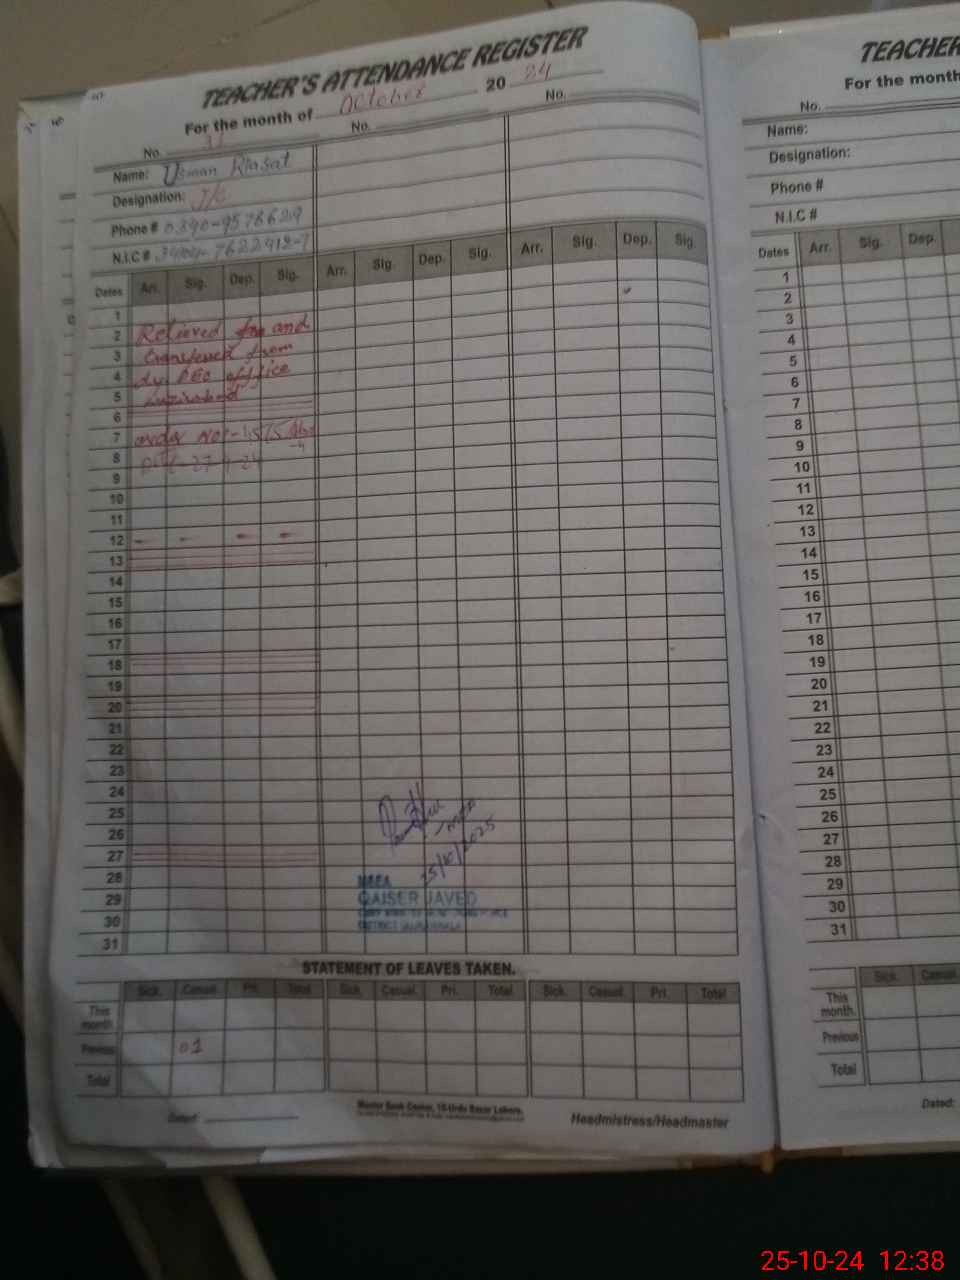 TEACHER'S ATTENDANCE REGISTER
For the month of October 2024
No. No. No.
Name: Usman Riasat
Designation: J/C
Phone #
N.I.C #
Dates Arr. Sig. Dep. Sig. Arr. Sig. Dep. Sig. Arr. Sig. Dep. Sig.
1
2 Relieved and
3 from
4 office
5
6
7 order No:-
8
9
10
11
12 - - - -
13
14
15
16
17
18
19
20
21
22
23
24
25
26
27
28
29
30
31
25/10/2025
MEEA
QAISER JAVED
STATEMENT OF LEAVES TAKEN.
Sick. Casual. Pri. Total Sick. Casual. Pri. Total Sick. Casual. Pri. Total
This month.
Previous 01
Total
Dated:
Master Book Center, 15-Urdu Bazar Lahore.
Headmistress/Headmaster
TEACHER
For the month
No.
Name:
Designation:
Phone #
N.I.C #
Dates Arr. Sig. Dep.
1
2
3
4
5
6
7
8
9
10
11
12
13
14
15
16
17
18
19
20
21
22
23
24
25
26
27
28
29
30
31
Sick. Casual.
This month.
Previous
Total
Dated:
25-10-24 12:38